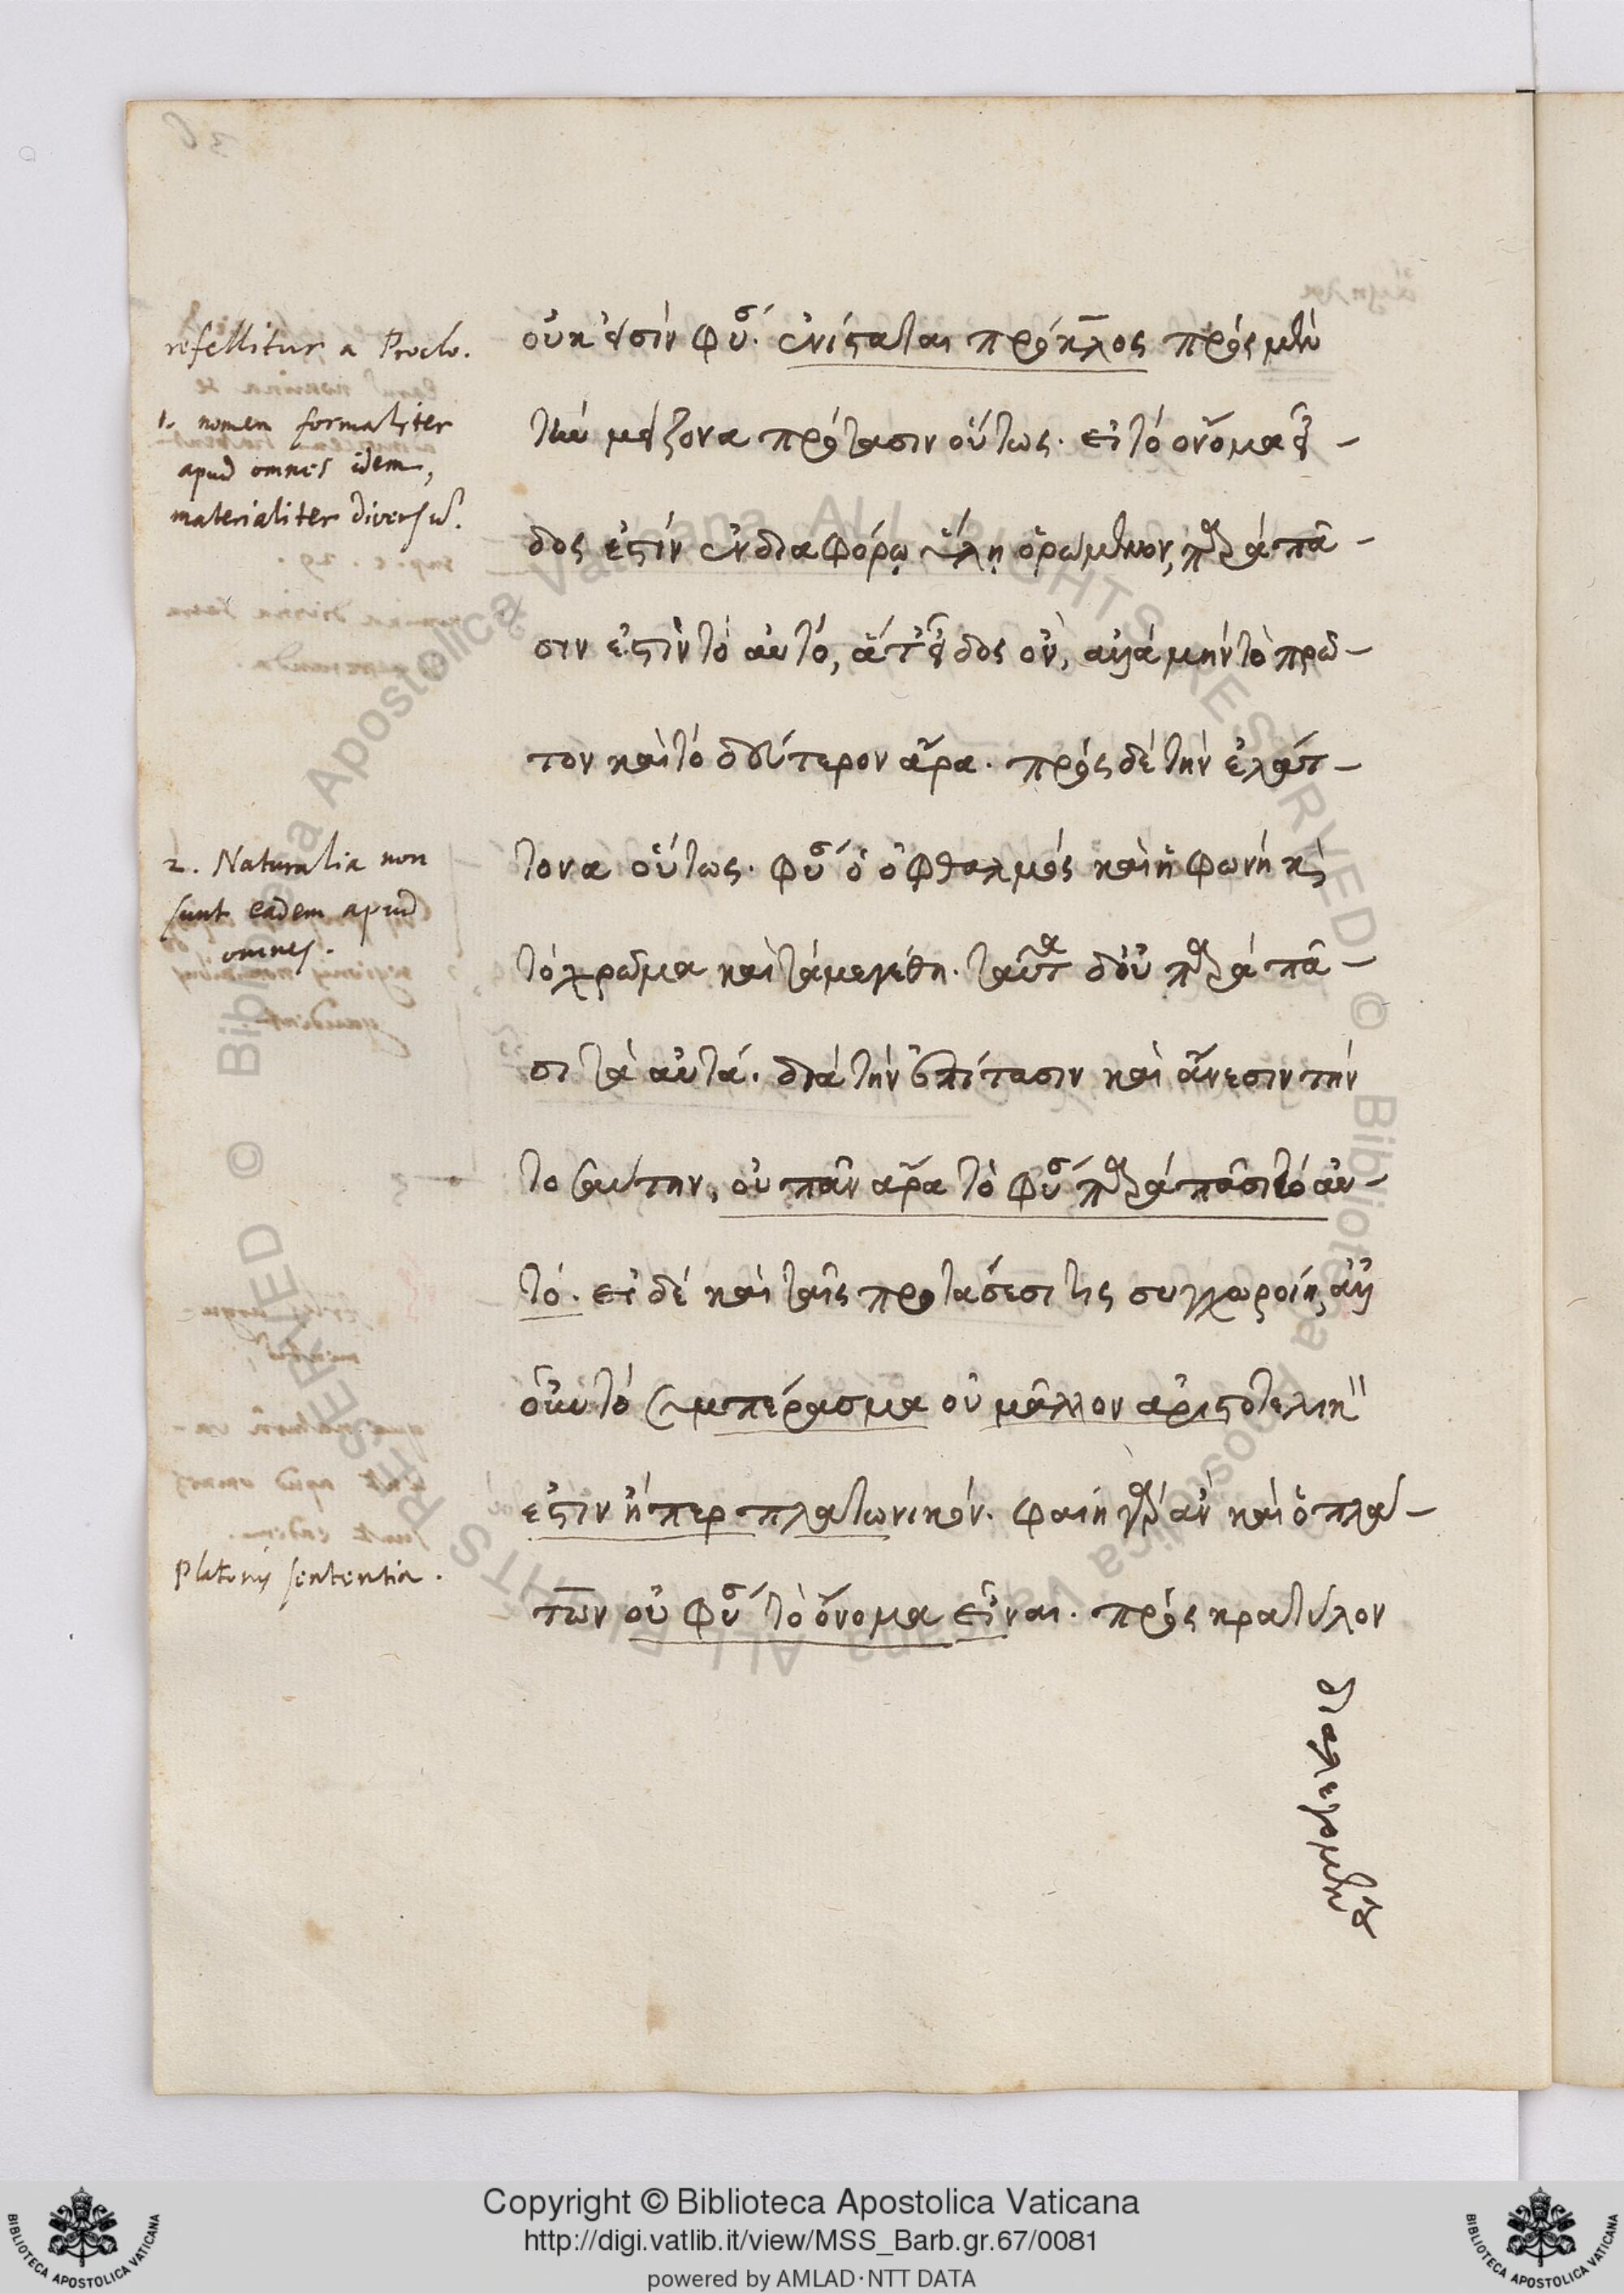 refellitur a Proclo.
1. nomen formaliter
apud omnes idem,
materialiter diversu͂.
2. Naturalia non
sunt eadem apud
omnes.
Platonis sententia.
οὐκ εἰσὶν φύσει. ἐνίσταται πρόκλος πρὸς μὲν
τὴν μείζονα πρότασιν οὕτως. εἰ τὸ ὄνομα εἶ-
δος ἐστὶν ἐν διαφόρῳ ὕλῃ ὁρώμενον, παρὰ πᾶ-
σιν ἐστὶν τὸ αὐτό, ἅτε εἶδος ὄν, ἀλλὰ μὴν τὸ πρῶ-
τον καὶ τὸ δεύτερον ἄρα. πρὸς δὲ τὴν ἐλάτ-
τονα οὕτως. φύσει ὁ ὀφθαλμὸς καὶ ἡ φωνὴ καὶ
τὸ χρῶμα καὶ τὰ μεγέθη. ταῦτα δ' οὐ παρὰ πᾶ-
σι τὰ αὐτά. διὰ τὴν ἐπίτασιν καὶ ἄνεσιν τὴν
τοιαύτην, οὐ πᾶν ἄρα τὸ φύσει παρὰ πᾶσι τὸ αὐ-
τό. εἰ δὲ καὶ ταῖς προτάσεσί τις συγχωροίη, ἀλλ'
οὖν τὸ συμπέρασμα οὐ μᾶλλον ἀριστοτελικὸν
ἐστιν ἤπερ πλατωνικόν. φαίη γὰρ ἂν καὶ ὁ πλά-
των οὐ φύσει τὸ ὄνομα εἶναι. πρὸς κρατύλον
διαλεγόμενος
Copyright © Biblioteca Apostolica Vaticana
http://digi.vatlib.it/view/MSS_Barb.gr.67/0081
powered by AMLAD·NTT DATA